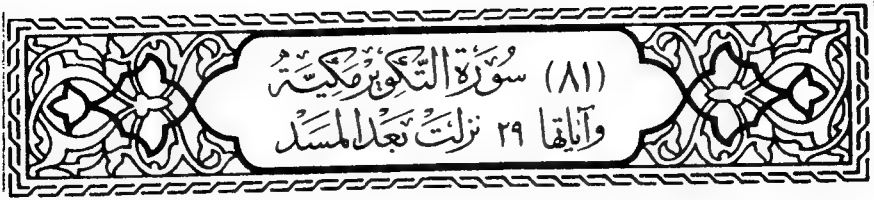 (٨١) سُورَة التَّكْوير مَكِيَّةُ
وآياتها ٢٩ نزلت بَعْد المَسَد